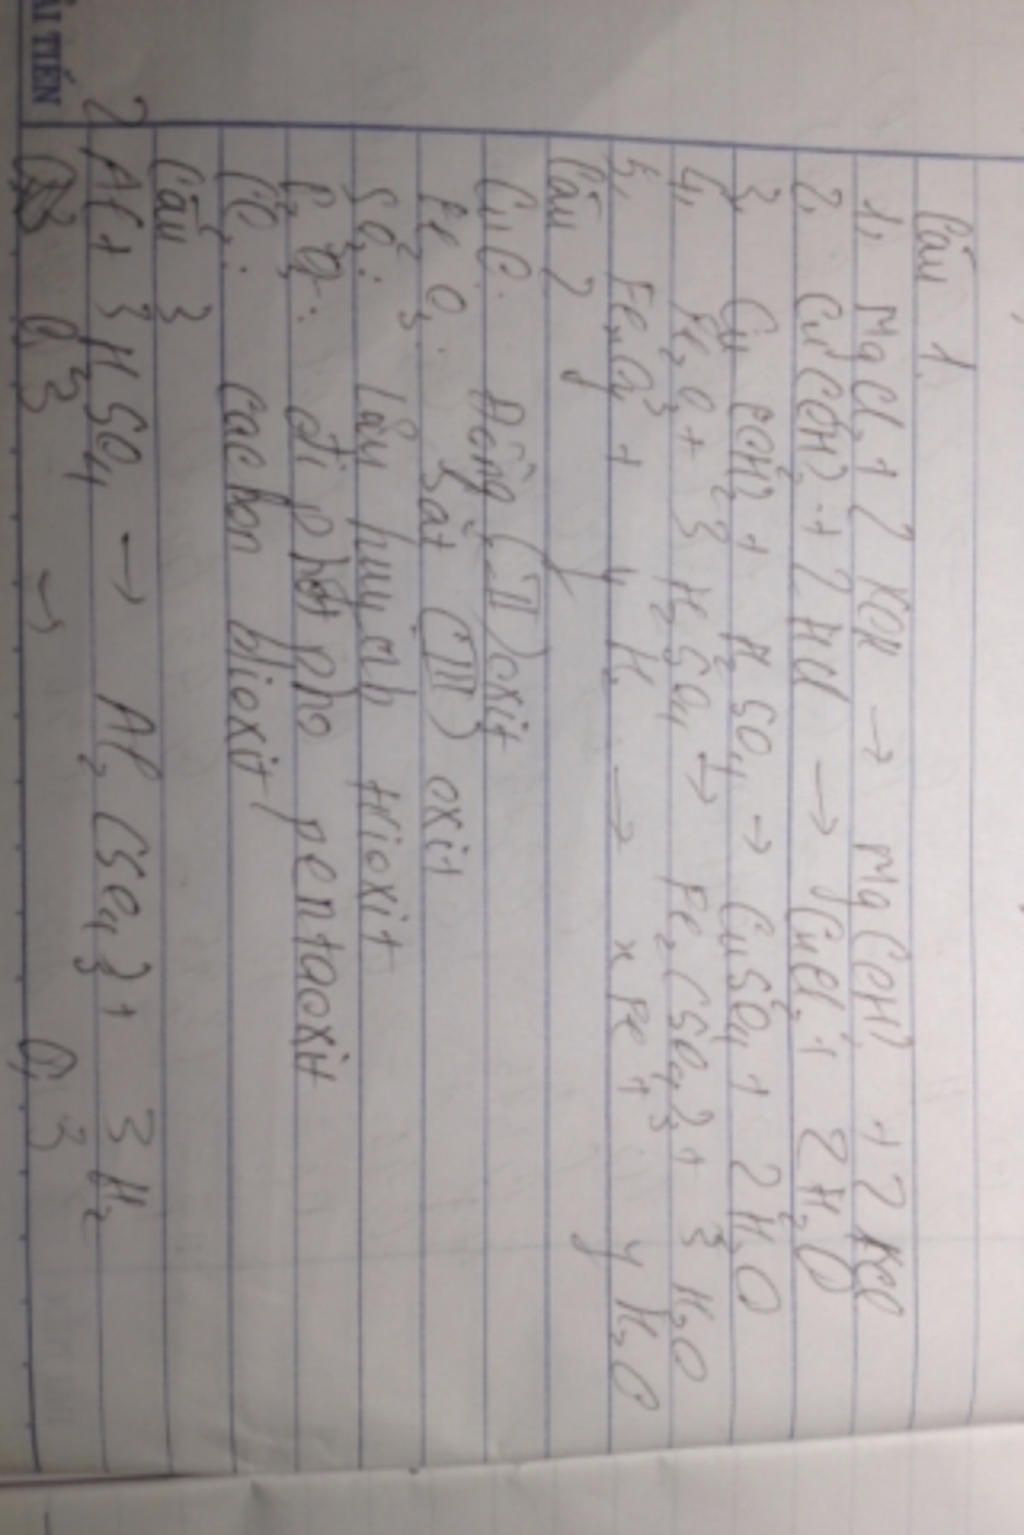 Câu 1
1, MgCl2 + 2 KOH → Mg(OH)2 + 2 KCl
2, Cu(OH)2 + 2 HCl → CuCl2 + 2H2O
3, Cu(OH)2 + H2SO4 → CuSO4 + 2 H2O
4, Fe2O3 + 3 H2SO4 → Fe2(SO4)3 + 3 H2O
5, FexOy + y H2 → x Fe + y H2O
Câu 2
CuO: Đồng (II) oxit
Fe2O3: Sắt (III) oxit
SO3: lưu huỳnh trioxit
P2O5: đi phốt pho pentaoxit
CO2: cacbon đioxit
Câu 3
2Al + 3 H2SO4 → Al2(SO4)3 + 3 H2
0,3 → 0,3
ẢI TIẾN